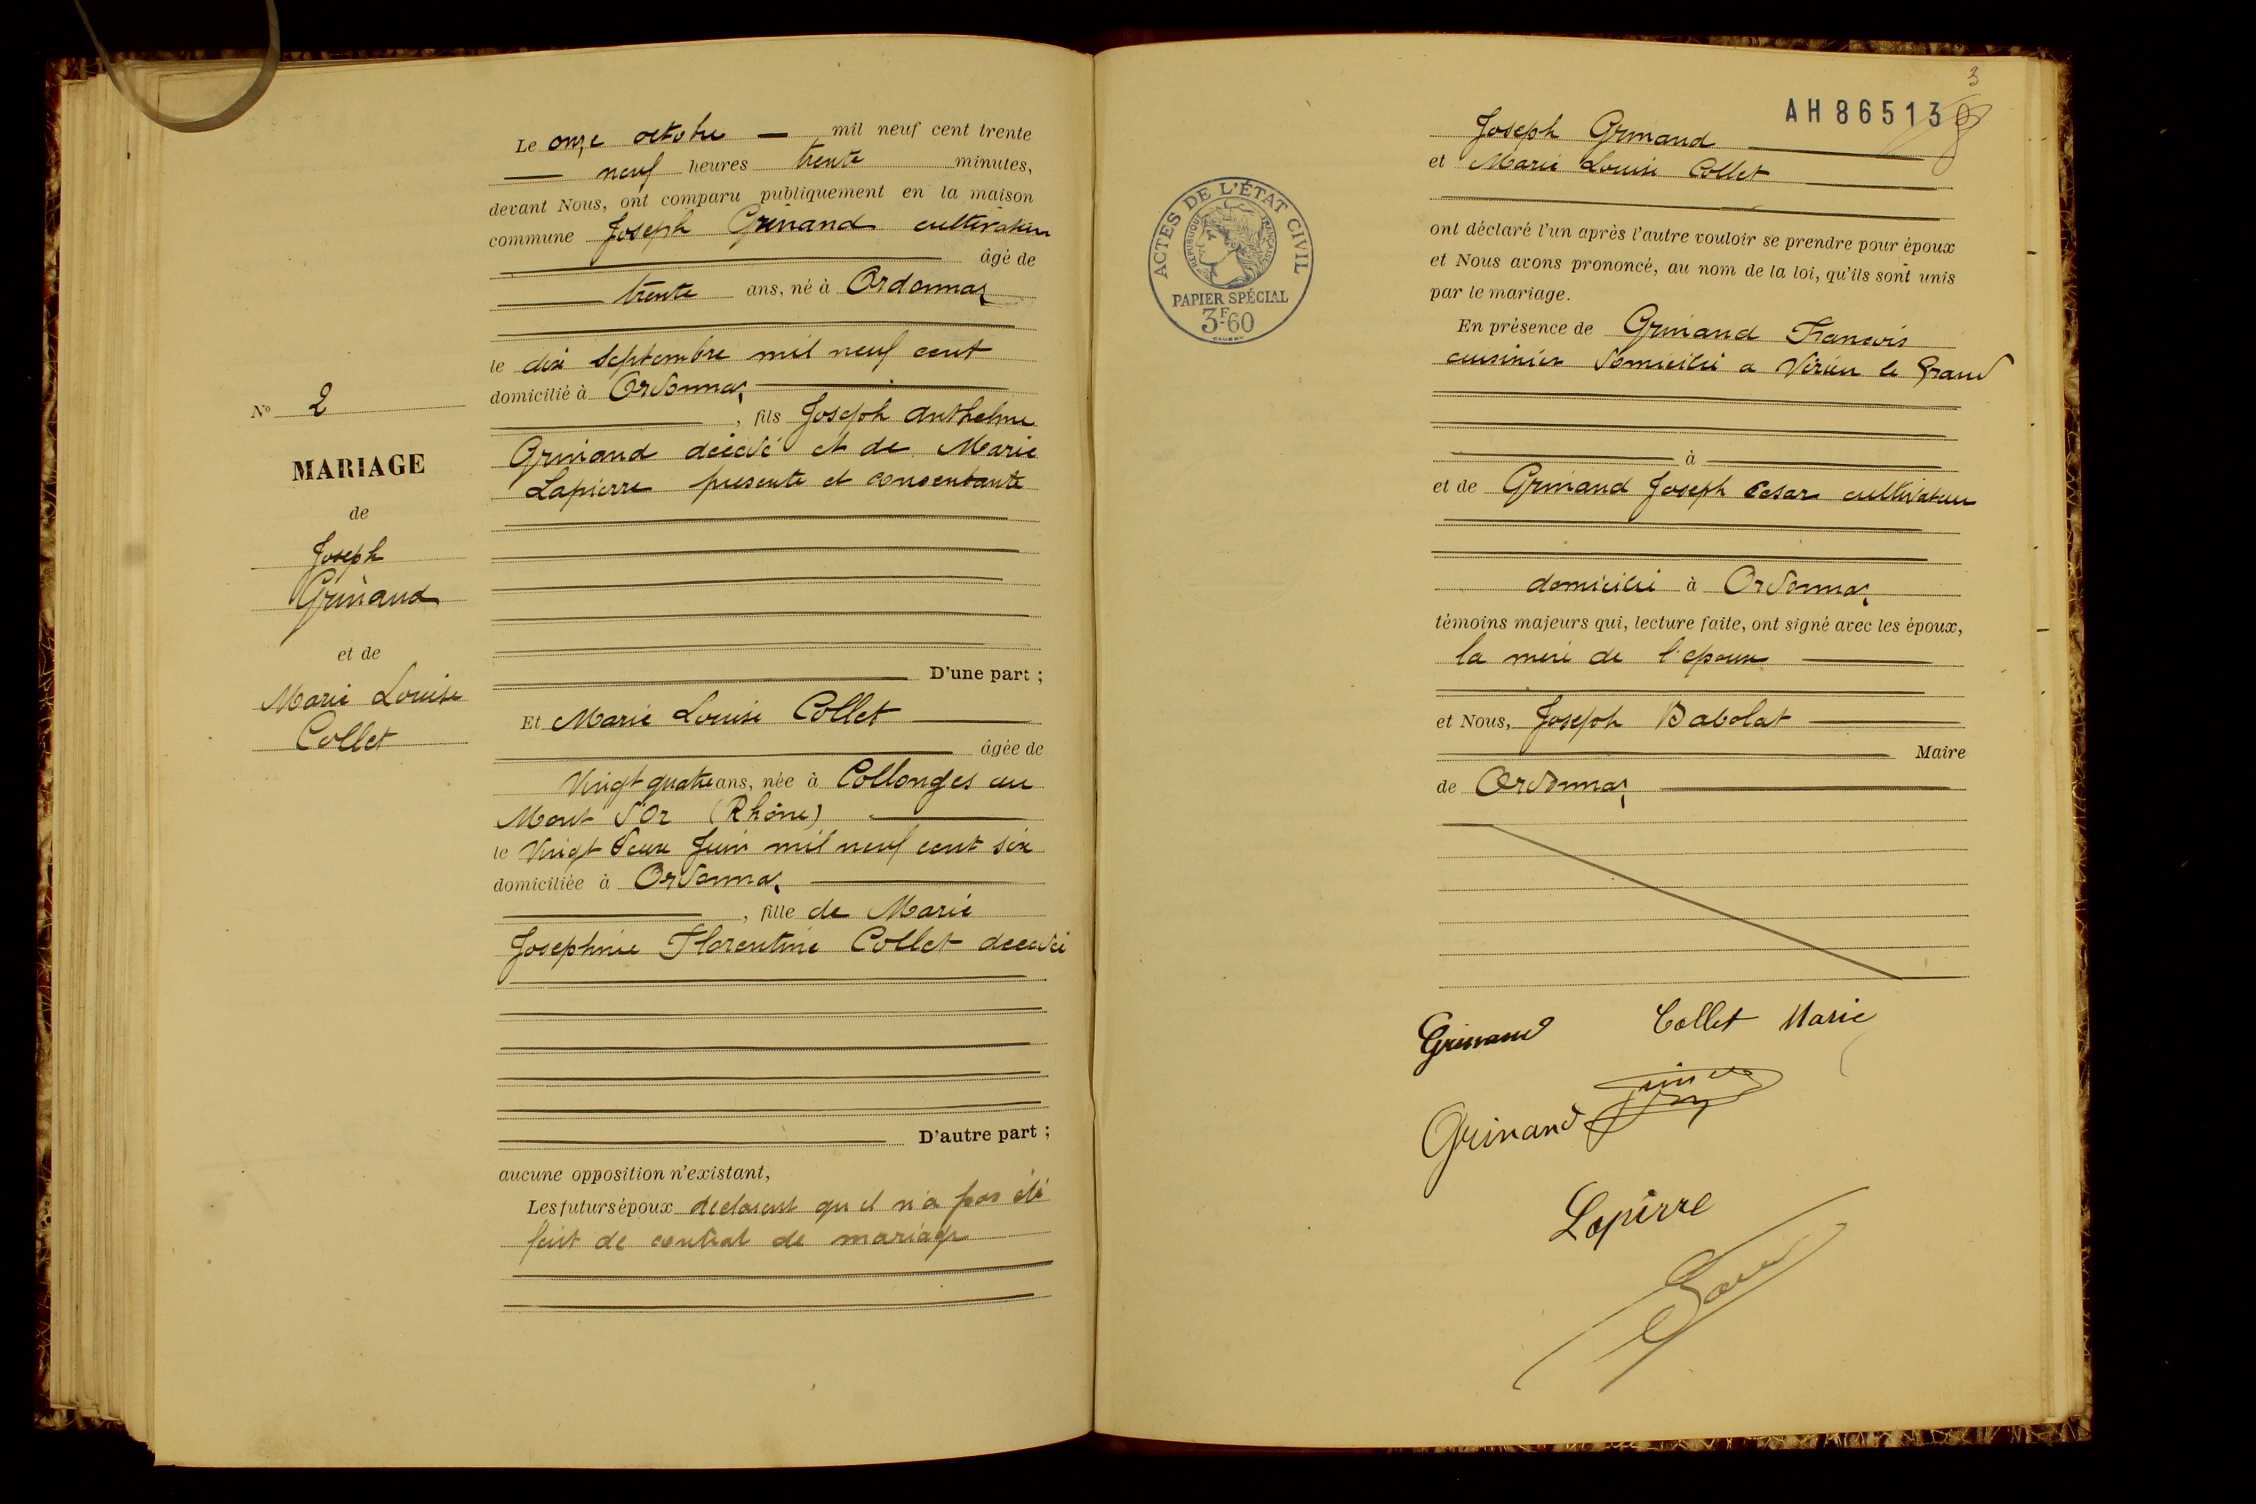 Le onze octobre — mil neuf cent trente
neuf heures trente minutes,
devant Nous, ont comparu publiquement en la maison
commune Joseph Grinand cultivateur
âgé de
trente ans, né à Ordonnaz
le dix septembre mil neuf cent
domicilié à Ordonnaz
, fils Joseph Anthelme
Grinand décédé et de Marie
Lapierre presente et consentante
D'une part ;
Et Marie Louise Collet
âgée de
Vingt quatre ans, née à Collonges au
Mont d'Or (Rhône)
le Vingt deux Juin mil neuf cent six
domiciliée à Ordonnaz
, fille de Marie
Josephine Florentine Collet decedée
D'autre part ;
aucune opposition n'existant,
Les futurs époux declarent qu il n'a pas été
fait de contrat de mariage
No 2
MARIAGE
de
Joseph
Grinand
et de
Marie Louise
Collet
3
AH 86513
Joseph Grinand
et Marie Louise Collet
ont déclaré l'un après l'autre vouloir se prendre pour époux
et Nous avons prononcé, au nom de la loi, qu'ils sont unis
par le mariage.
En présence de Grinand Francois
cuisinier domicilié a Virieu le Grand
à
et de Grinand Joseph Cesar cultivateur
domicilié à Ordonnaz
témoins majeurs qui, lecture faite, ont signé avec les époux,
la mère de l'epoux
et Nous, Joseph Babolat
Maire
de Ordonnaz
ACTES DE L'ÉTAT CIVIL
RÉPUBLIQUE FRANÇAISE
PAPIER SPÉCIAL
3F60
Grinand Collet Marie
Grinand
Lapierre